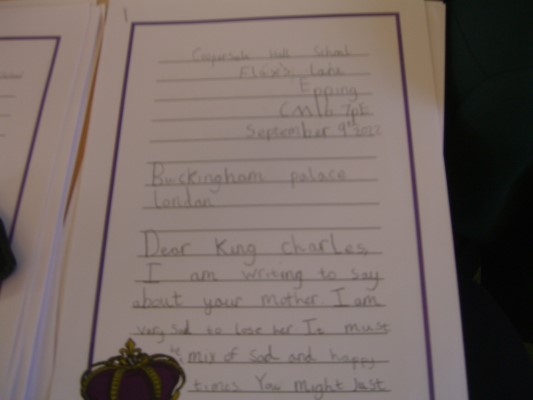 Coopersale Hall School
Flux's Lane
Epping
CM16 7PE
September 9th 2022
Buckingham palace
London
Dear King Charles
I am writing to say
about your mother I am
very sad to lose her It must
be mix of sad and happy
times You might last